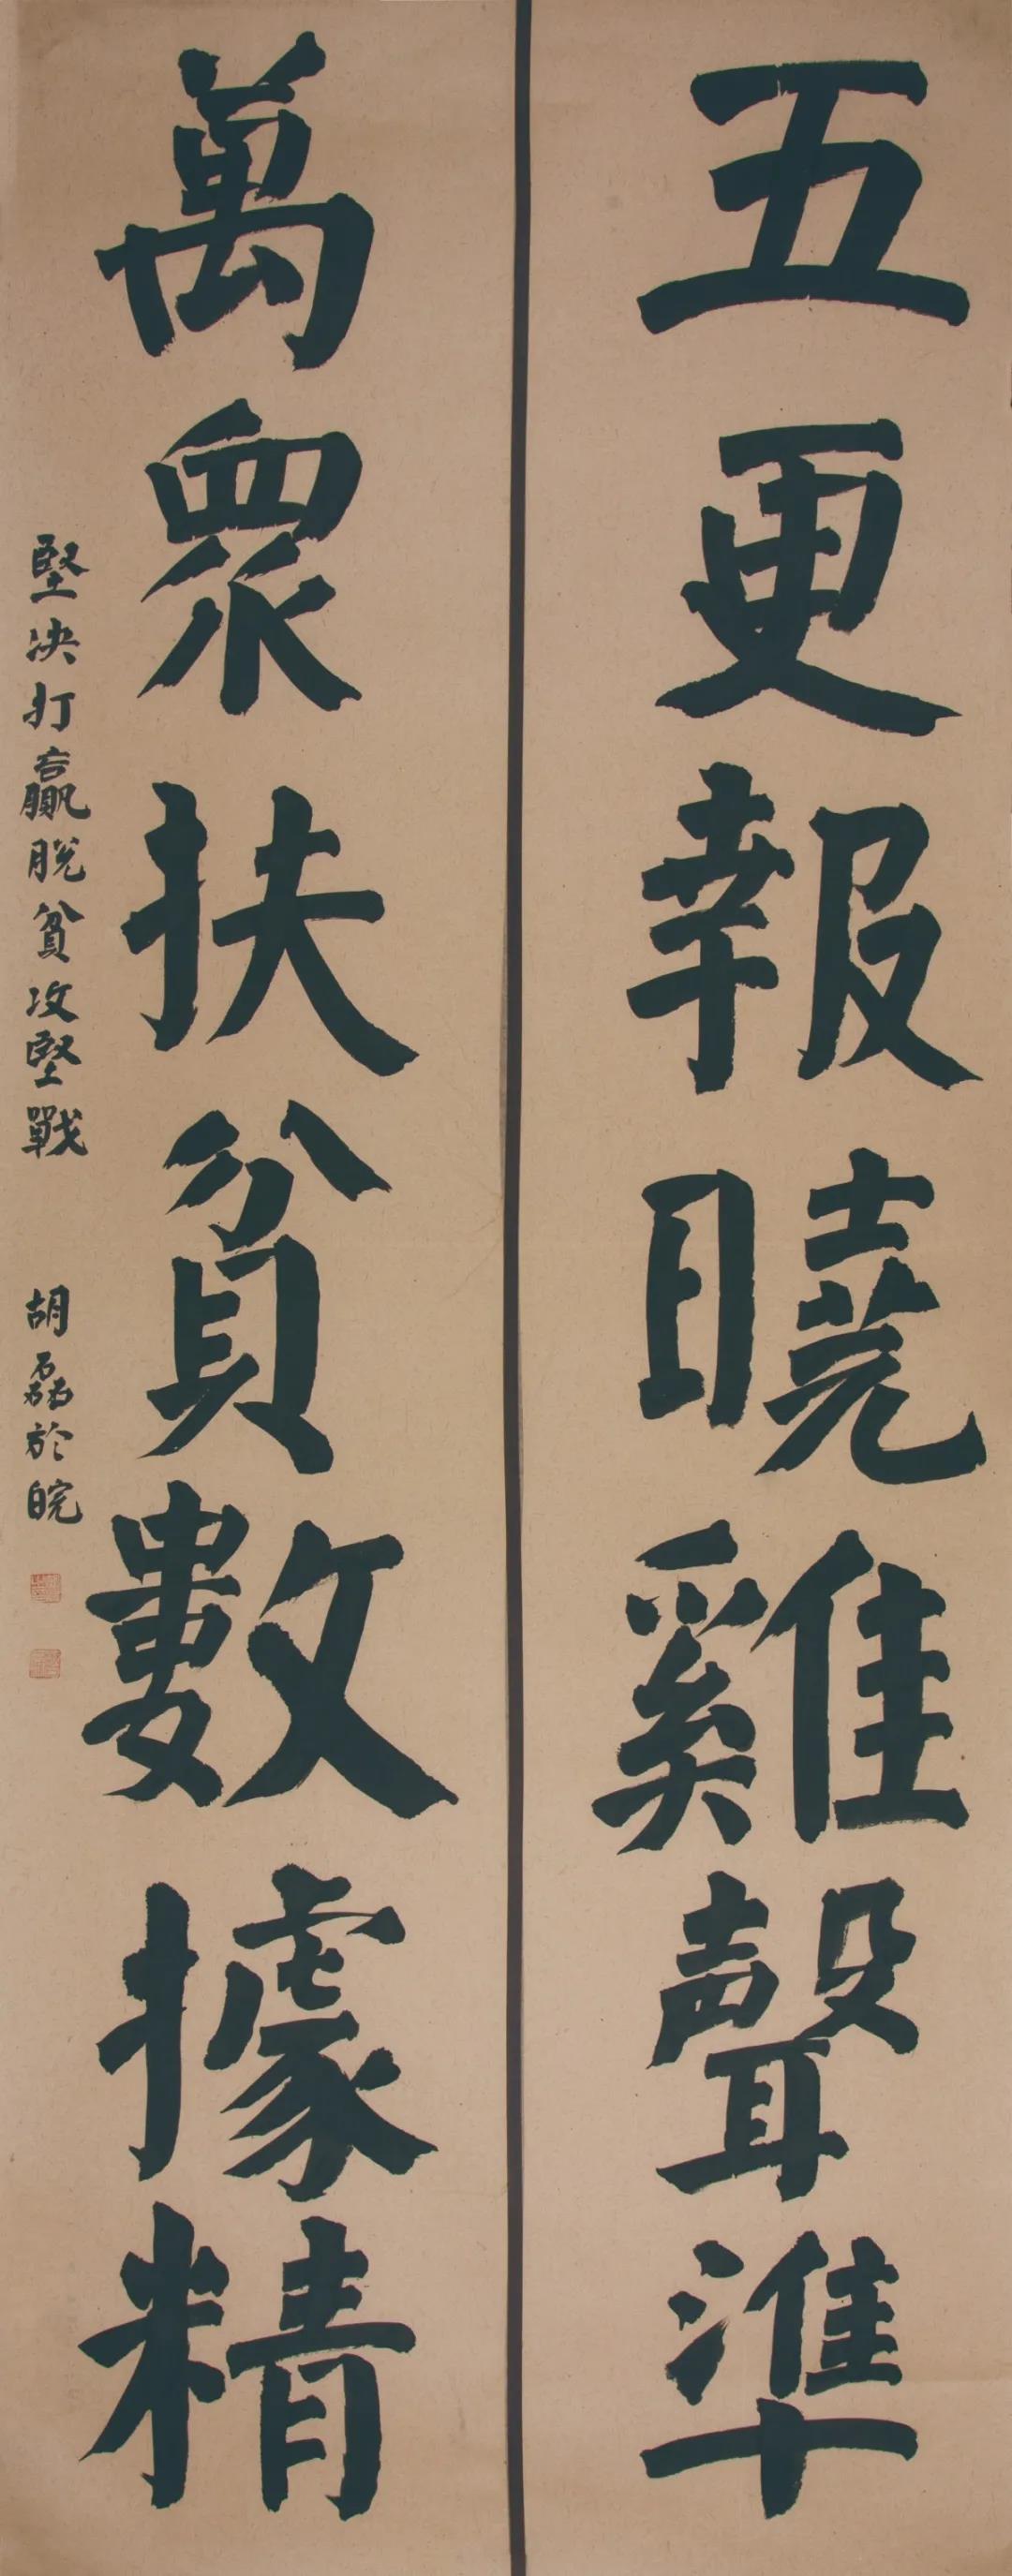 五更報曉雞聲準
萬眾扶貧數據精
堅决打贏脫貧攻堅戰
胡磊於皖